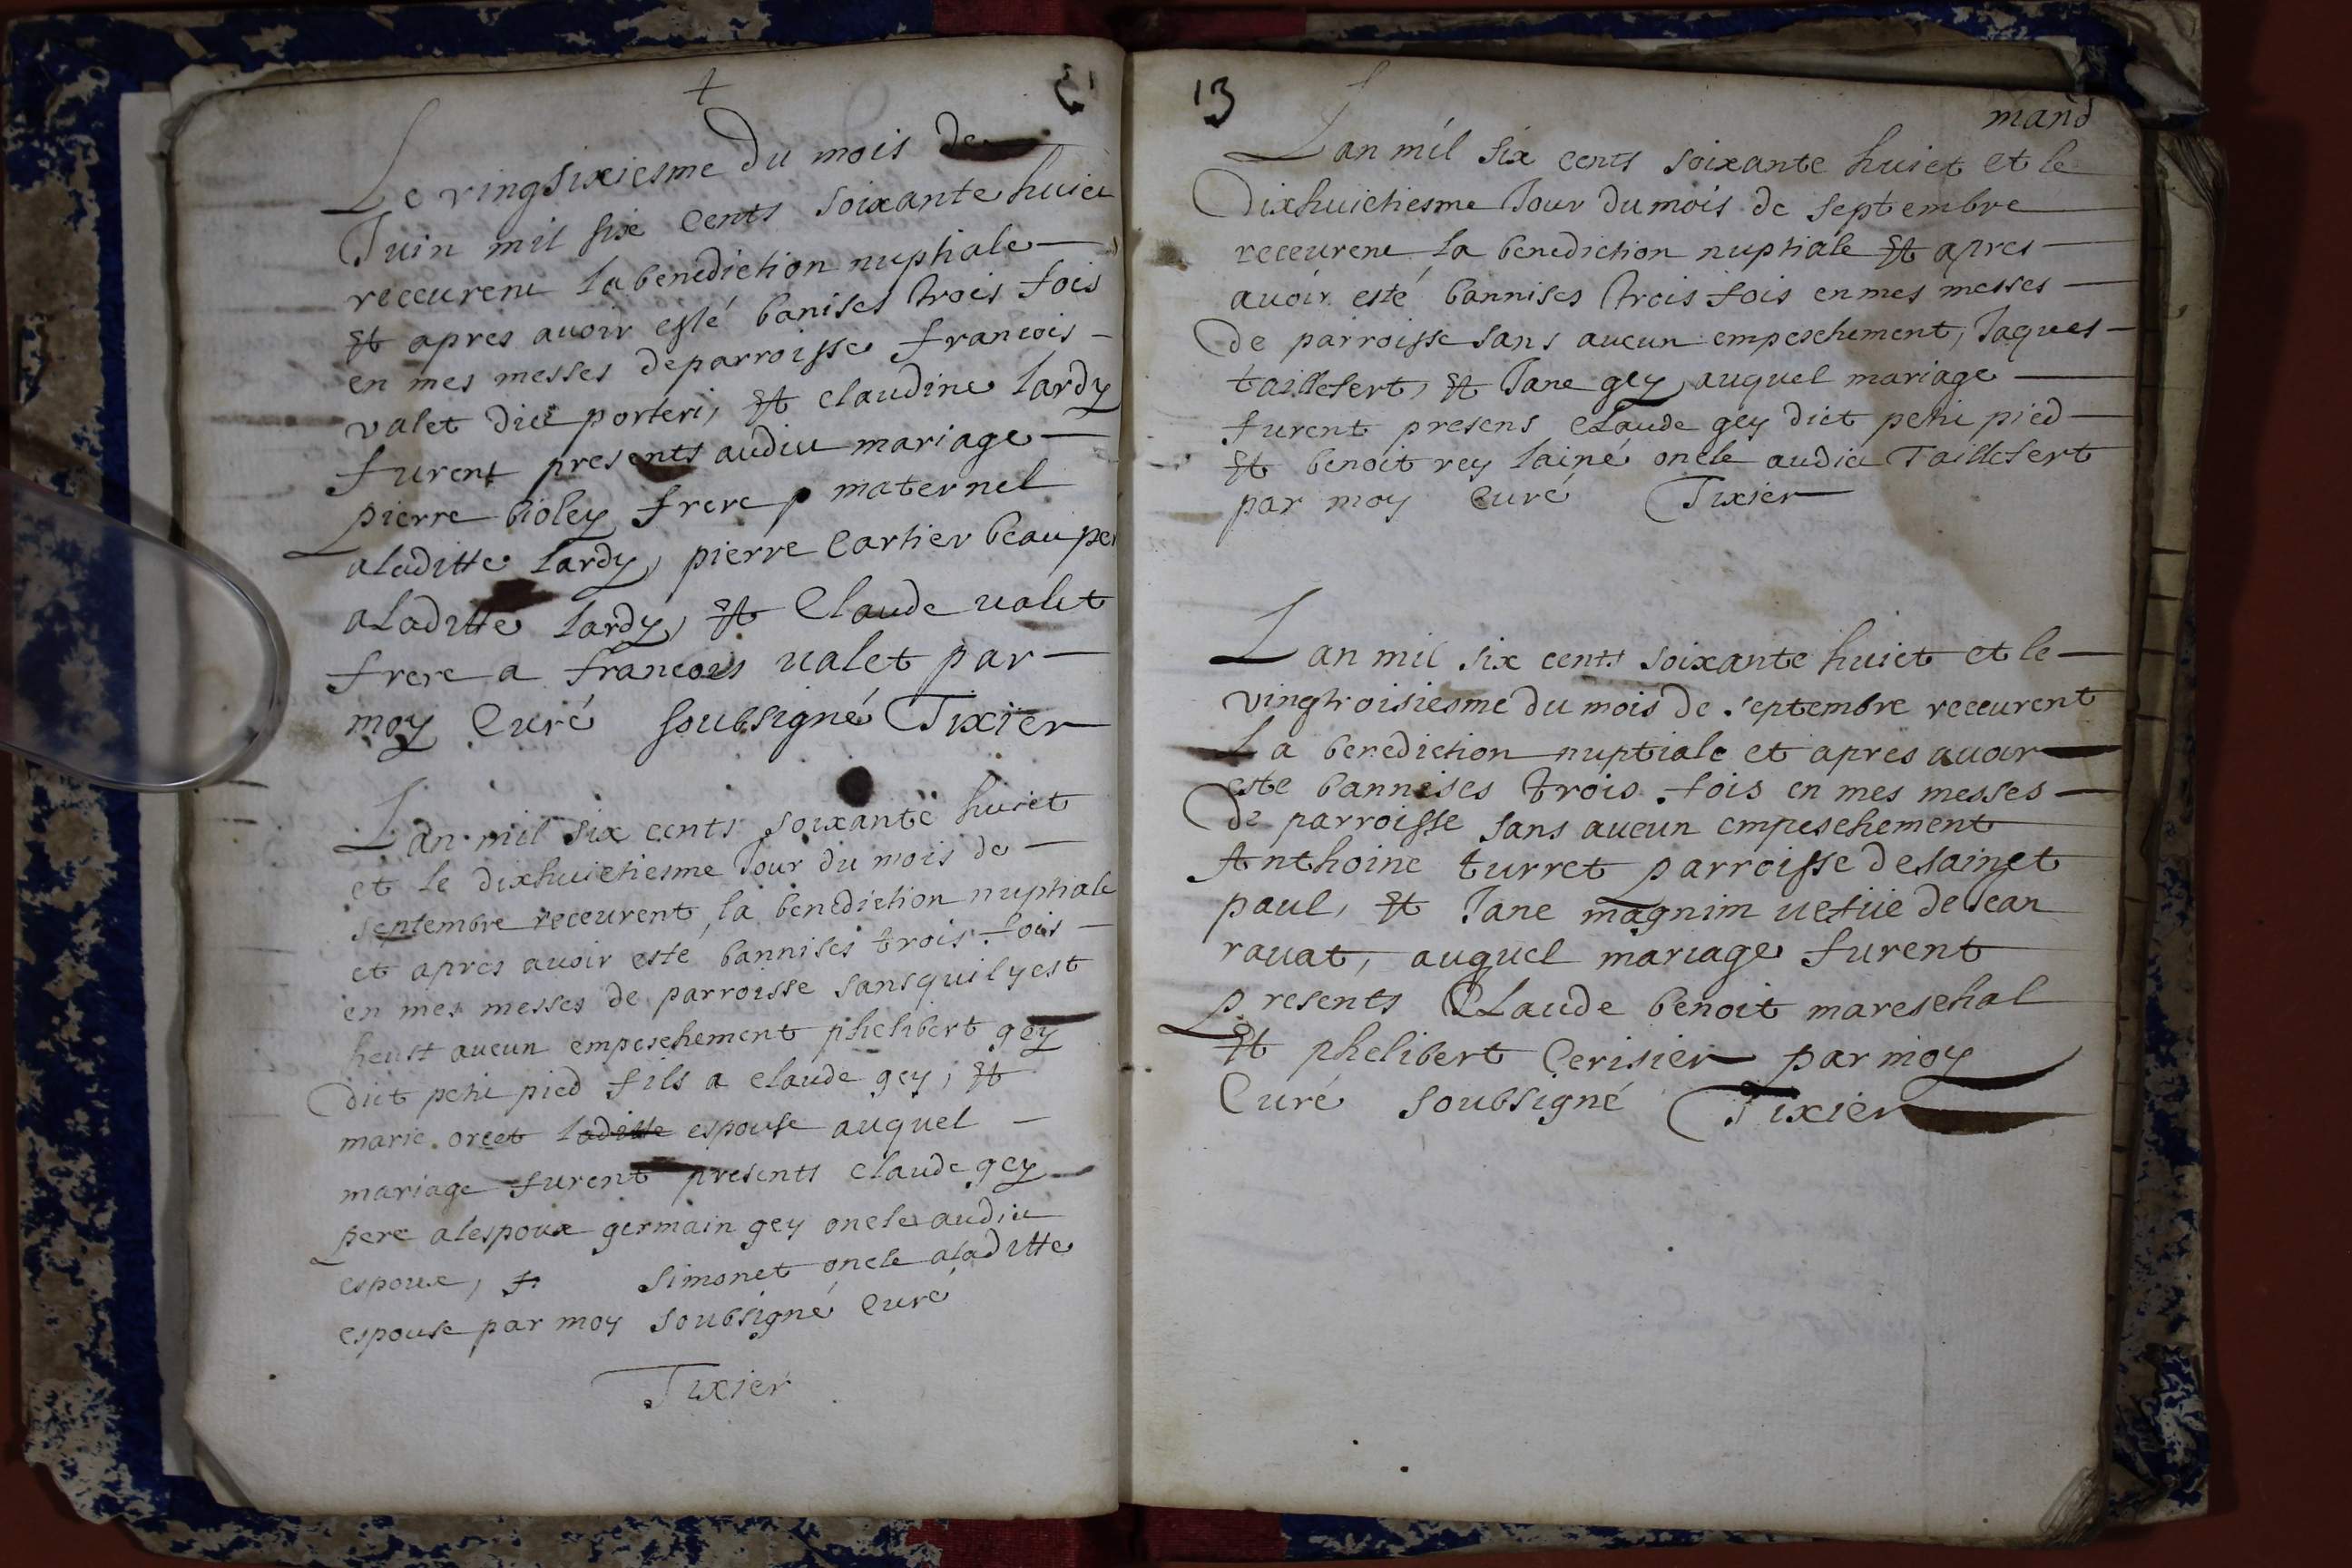 +
Le vingsixiesme du mois de
Juin mil six cents soixante huict
receurent la benediction nuptiale
Et apres avoir esté banises trois fois
en mes messes de parroisse francois
valet dict porteri, Et claudine lardy
furent presents audict mariage
pierre bioley frere p maternel
a laditte lardy, pierre Cartier beau per
a laditte lardy, Et Claude valet
frere a francois valet par
moy Curé soubsigné Tixier
Lan mil six cents soixante huict
et le dixhuictiesme Jour du mois de
septembre receurent la benediction nuptiale
et apres avoir esté bannises trois fois
en mes messes de parroisse sans quil y est
heust aucun empeschement phelibert gey
dict petit pied fils a claude gey, Et
marie orcet laditte espouse auquel
mariage furent presents claude gey
pere a lespoux germain gey oncle audict
espoux, simonet oncle a laditte
espouse par moy soubsigné Curé
Tixier
13
mand
Lan mil six cents soixante huict et le
dixhuictiesme Jour du mois de septembre
receurent la benediction nuptiale Et apres
auoir esté bannises trois fois en mes messes
de parroisse sans aucun empeschement, Jaques
taillefert, Et Jane gey, auquel mariage
furent presens claude gey dict petit pied
Et benoit rey lainé oncle audict Taillefert
par moy Curé Tixier
Lan mil six cents soixante huict et le
vingtroisiesme du mois de septembre receurent
La benediction nuptiale et apres avoir
este bannises trois fois en mes messes
de parroisse sans aucun empeschement
Anthoine turret parroisse de sainct
paul, Et Jane magnim uefue de Jean
rauat, auquel mariage furent
presents Claude benoit mareschal
Et phelibert Cerisier par moy
Curé soubsigné Tixier